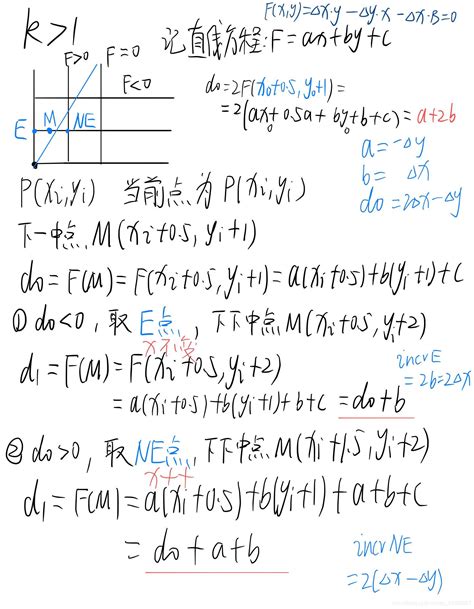 F(x,y)=Δx·y-Δy·x-Δx·B=0
k>1
记直线方程:F=ax+by+c
F>0 F=0
F<0
E M NE
d0=2F(x0+0.5,y0+1)=
=2(ax0+0.5a+by0+b+c)=a+2b
a=-Δy
b=Δx
d0=2Δx-Δy
P(xi,yi) 当前点为P(xi,yi)
下一中点M(xi+0.5,yi+1)
d0=F(M)=F(xi+0.5,yi+1)=a(xi+0.5)+b(yi+1)+c
① d0<0,取E点,下下中点M(xi+0.5,yi+2)
x不变
d1=F(M)=F(xi+0.5,yi+2)
=a(xi+0.5)+b(yi+1)+b+c=d0+b
incrE
=2b=2Δx
② d0>0,取NE点,下下中点M(xi+1.5,yi+2)
x++
d1=F(M)=a(xi+0.5)+b(yi+1)+a+b+c
=d0+a+b
incrNE
=2(Δx-Δy)